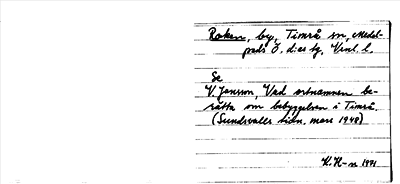 Roken, by, Timrå sn, Medel-
pads Ö. d:as tg, Vnl. l.
Se
V. Jansson, Vad ortnamnen be-
rätta om bebyggelsen i Timrå.
(Sundsvalls tidn. mars 1948)
K. H-n 1971